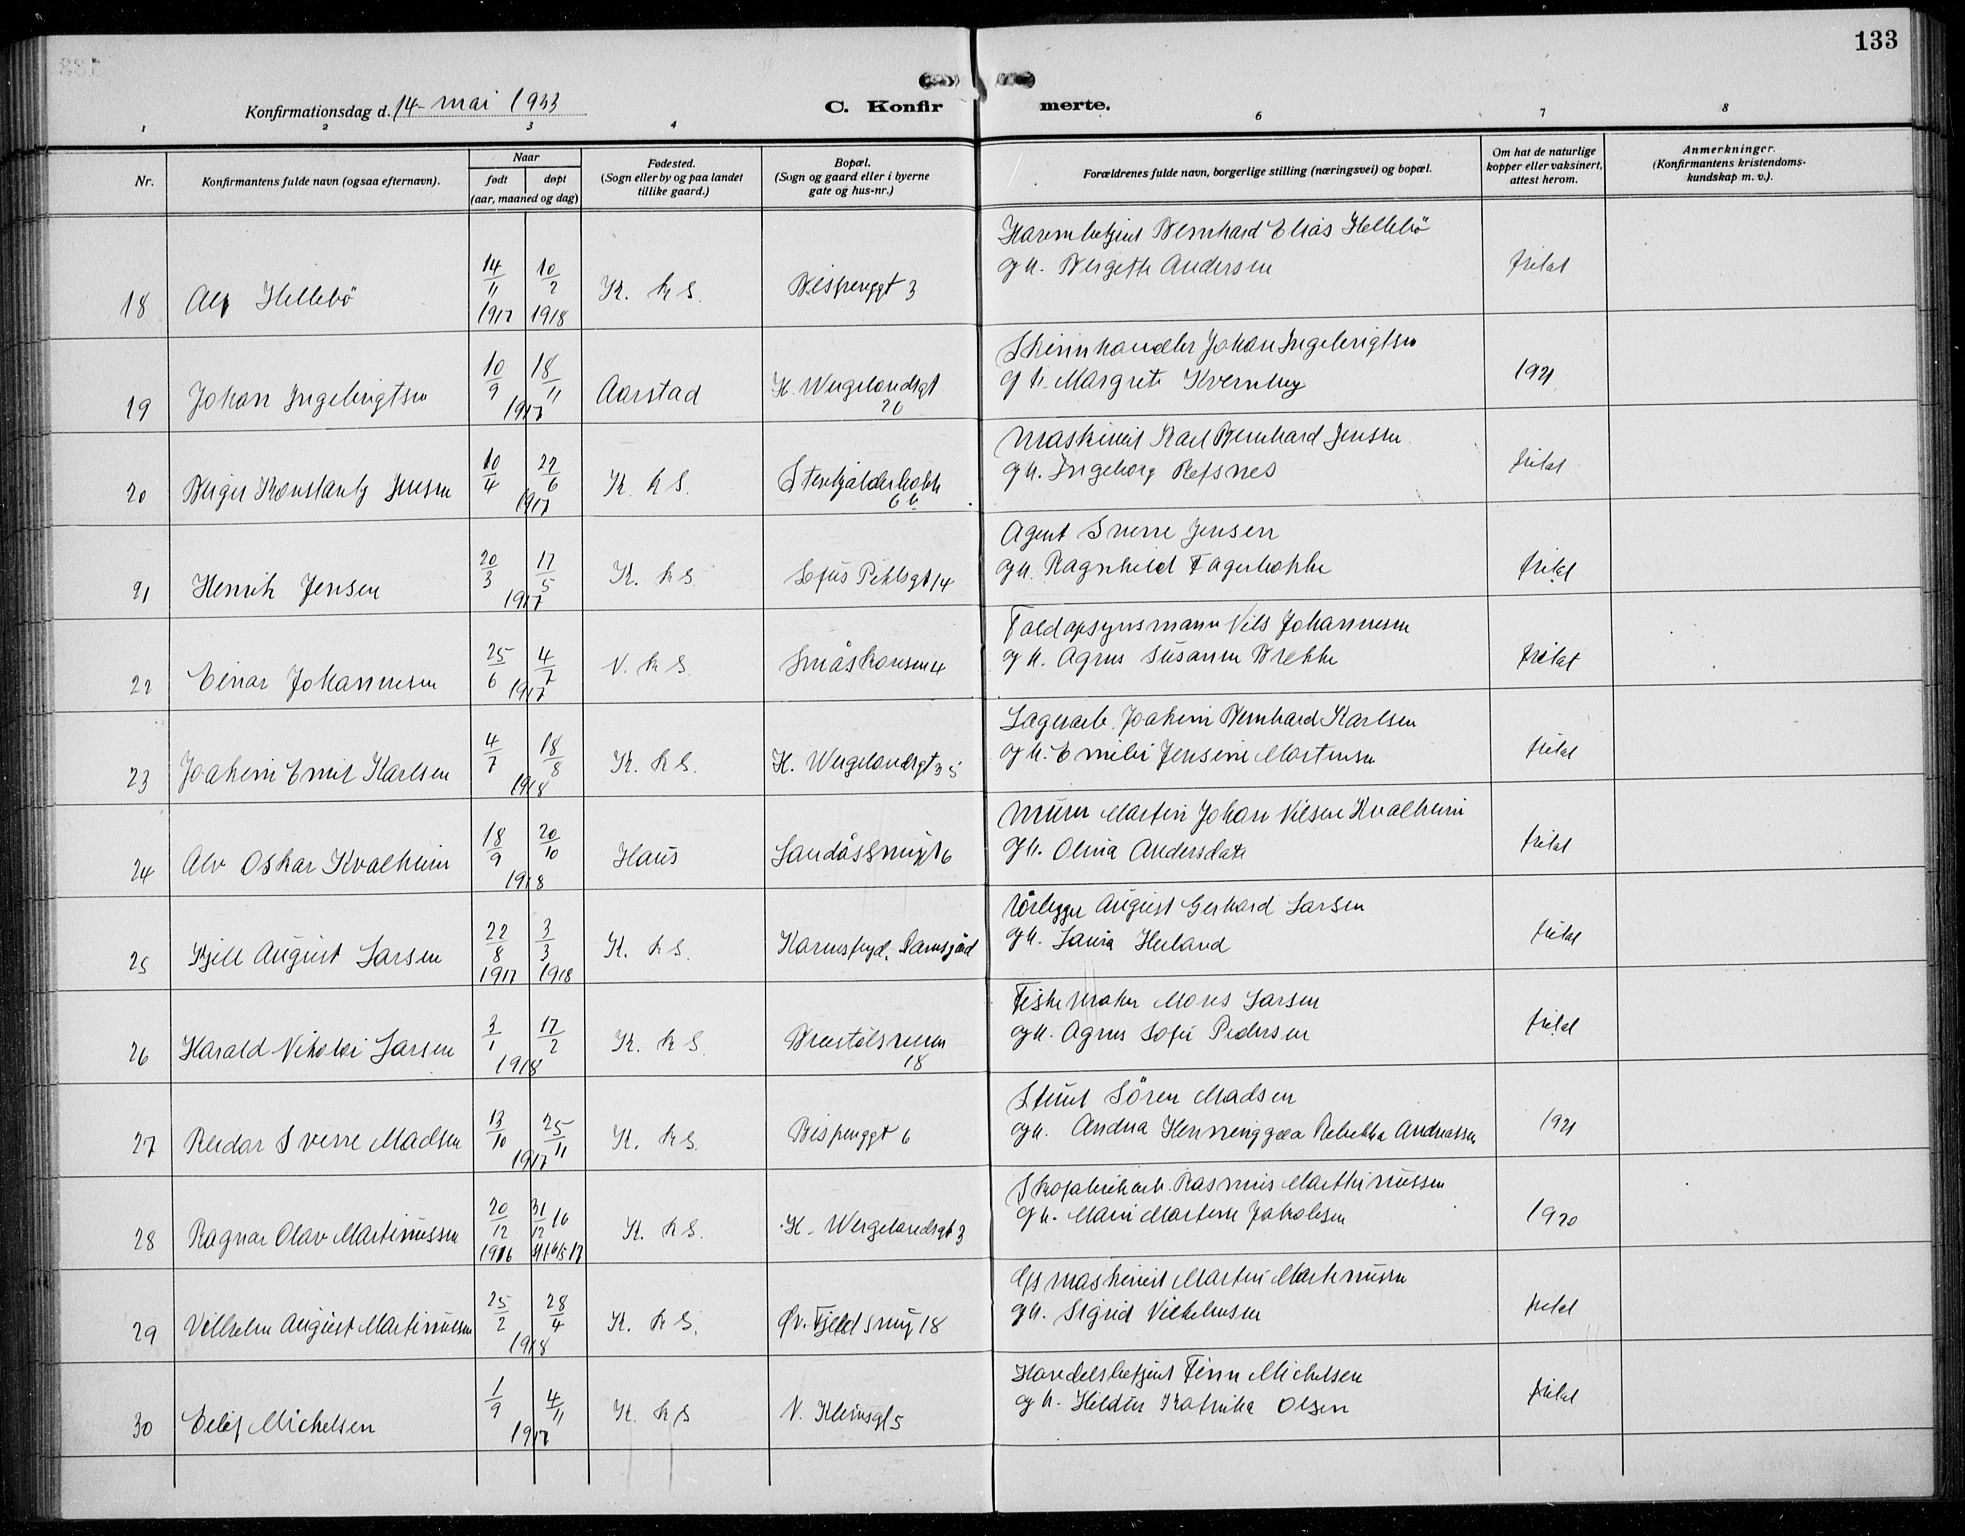 133
Konfirmationsdag d. 14 - mai 1933
C. Konfirmerte.
1 2 3 4 6 7 8
Nr.
Konfirmantens fulde navn (ogsaa efternavn).
Naar
født døpt
(aar, maaned og dag)
Fødested.
(Sogn eller by og paa landet
tillike gaard.)
Bopæl.
(Sogn og gaard eller i byerne
gate og hus-nr.)
Forældrenes fulde navn, borgerlige stilling (næringsvei) og bopæl.
Om hat de naturlige
kopper eller vaksinert,
attest herom.
Anmerkninger.
(Konfirmantens kristendoms-
kundskap m. v.).
Bernhard Elias Hellebö
og h. Bergitte Andersen
18 Alf Hellebö 14/11 1917 10/2 1918 K. k S. Bispenggt 3 fritat
Skinnhandler Johan Ingebrigtsen
og h. Margrete Kvernhey
19 Johan Ingebrigtsen 10/9 18/11 1917 Aarstad H. Wergelandsgt 20 1921
Maskinist Karl Bernhard Jensen
og h. Ingeborg Refsnes
20 Birger Konstantz Jensen 10/4 22/6 1917 K. k S. Sterkjalderbakk 6 b fritat
Agent Sverre Jensen
og h. Ragnhild Fagerbakke
21 Henrik Jensen 20/3 17/5 1917 K. k S. Sofus Pihlsgt 14 fritat
Toldopsynsmann Nils Johannesen
og h. Agnes Susanne Brekke
22 Einar Johannesen 25/6 4/7 1917 N. k S. Småskansen 4 fritat
Lagerarb. Joakim Bernhard Karlsen
og h. Emilie Jensine Martensen
23 Joakim Emil Karlsen 4/7 18/8 1918 K. k S. H. Wergelandsgt 35 fritat
Murer Martin Johan Nilsen Kvalheim
og h. Olivia Andersdate
24 Alv Oskar Kvalheim 18/9 20/10 1918 Haus Landåssmugt 6 fritat
Rörlegger August Gerhard Larsen
og h. Laura Heiland
25 Kjell August Larsen 22/8 1917 3/3 1918 K. k S. Damsgård fritat
Fiskemaker Mons Larsen
og h. Agnes Sofie Pedersen
26 Harald Nikolai Larsen 3/1 17/2 1918 K. k S. Breistölsveien 18 fritat
Stuert Sören Madsen
og h. Andrea Henninggaa Rebekka Andreassen
27 Reidar Sverre Madsen 13/10 25/11 1917 K. k S. Bispenggt 6 1921
Skofabrikarb. Rasmus Marthinussen
og h. Marie Martene Jakobsen
28 Ragnar Olav Martinussen 20/12 1916 31/12 16 K. k S. H. Wergelandsgt 3 1920
maskinist Martin Martinussen
og h. Sigrid Vilhelmsen
29 Vilhelm August Martinussen 25/2 28/4 1918 K. k S. Øv. Fjeldsmug 18 fritat
Handelsbetjent Finn Michelsen
og h. Hildur Katinka Olsen
30 Eilif Michelsen 1/9 4/11 1917 K. k S N. Kleivsgt 5 fritat